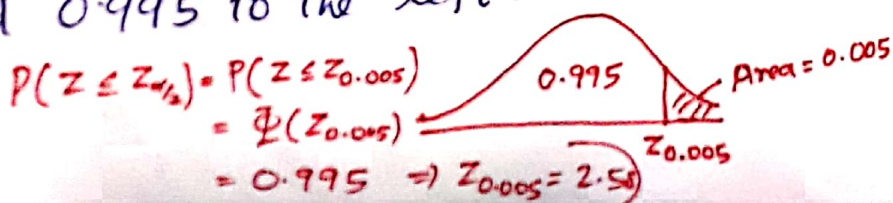 0.995 to the
P(Z ≤ Z_{α/2}) = P(Z ≤ Z_{0.005})
= Φ(Z_{0.005})
= 0.995 ⇒ Z_{0.005} = 2.58
0.995
Area = 0.005
Z_{0.005}